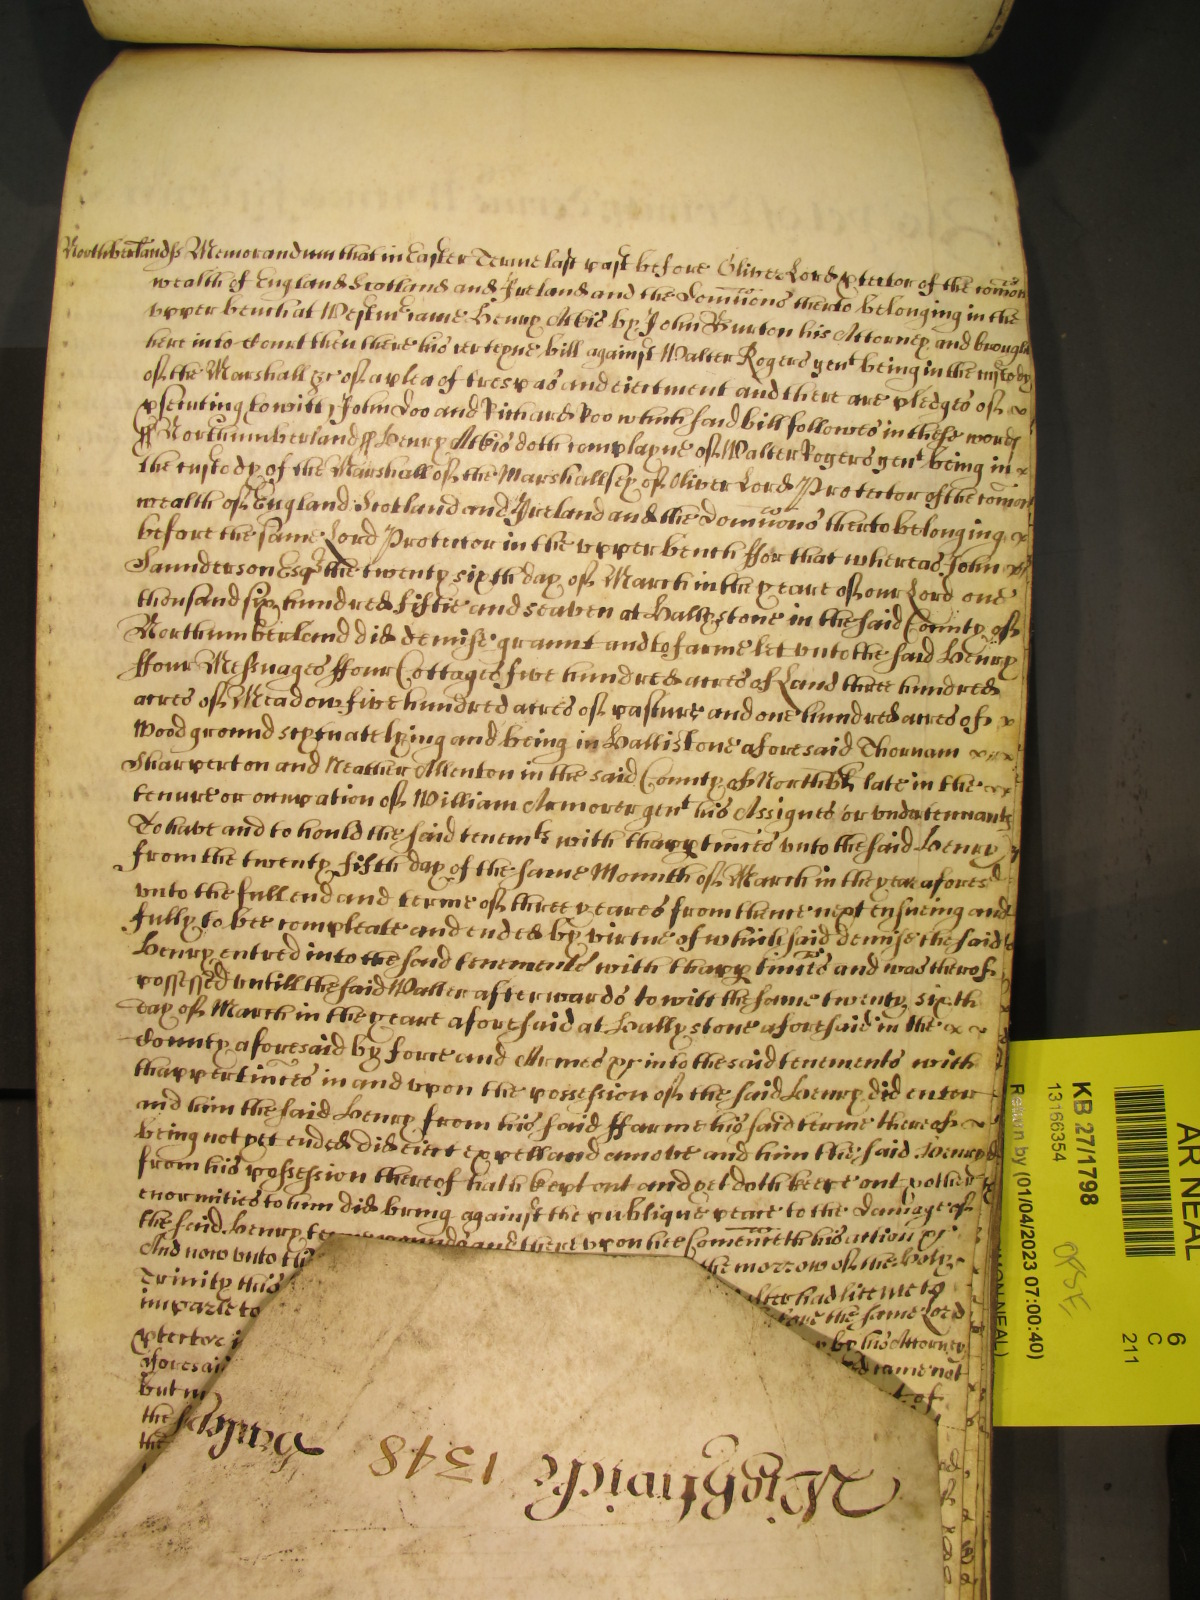 Northberlandss Memorandum that in Easter Terme last past before Oliver Lord Ptector of the comon
wealth of England Scotland and Ireland and the Dominions therto belonging in the
upper bench at Westmr came Henry Atkis by John Burton his Attorney and brought
here into Court then there his certeyne bill against Walter Rogers gent being in the custody
of the Marshall &c of a plea of trespas and eiectment and there are pledges of
psecuting to witt John Doo and Richard Roo which said bill followes in these words
ss Northumberland ss Henry Atkis doth complayne of Walter Rogers gent being in
the custody of the Marshall of the Marshallsey of Oliver Lord Protector of the comon
wealth of England Scotland and Ireland and the Dominions therto belonging
before the same Lord Protector in the upper bench ffor that whereas John
Saunderson Esqr the twenty sixth day of March in the yeare of our Lord one
thousand six hundred fiftie and seaven at Hallystone in the said County of
Northumberland did demise graunt and to farme let unto the said Henry
ffour Messuages ffour Cottages five hundred acres of Land three hundred
acres of Meadow five hundred acres of pasture and one hundred acres of
Wood ground scytuate lying and being in Hallistone aforesaid Thornam
Sharperton and Neather Allenton in the said County of Northbl late in the
tenure or occupation of William Armorer gent his Assignes or undertennants
To have and to hould the said tenemts with thapptinces unto the said Henry
from the twenty fifth day of the same Mounth of March in the yeare aforesd
unto the full end and terme of three yeares from thence next ensueing and
fully to bee compleate and ended by virtue of which said demise the said
Henry entred into the said tenements with thapptinces and was therof
possessed untill the said Walter afterwards to witt the same twenty sixth
day of March in the yeare aforesaid at Hallystone aforesaid in the
County aforesaid by force and Armes &c into the said tenements with
thappertinces in and upon the possession of the said Henry did enter
and him the said Henry from his said ffarme his said terme thereof
being not yet ended did eiect expell and amove and him the said Henry
from his possession thereof hath kept out and yet doth keepe out & other
enormities to him did bring against the publique peace to the damage of
the said Henry and thereupon hee Comenceth his action &c
And now unto the morrow of the Holy
Trinity this had licence to
imparle to the same Lord
ptector by his Attorney
aforesaid came not
but of
the
the
Wightwicke 1348
KB 27/1798
13166354
Return by (01/04/2023 07:00:40)
AR NEAL
6
C
211